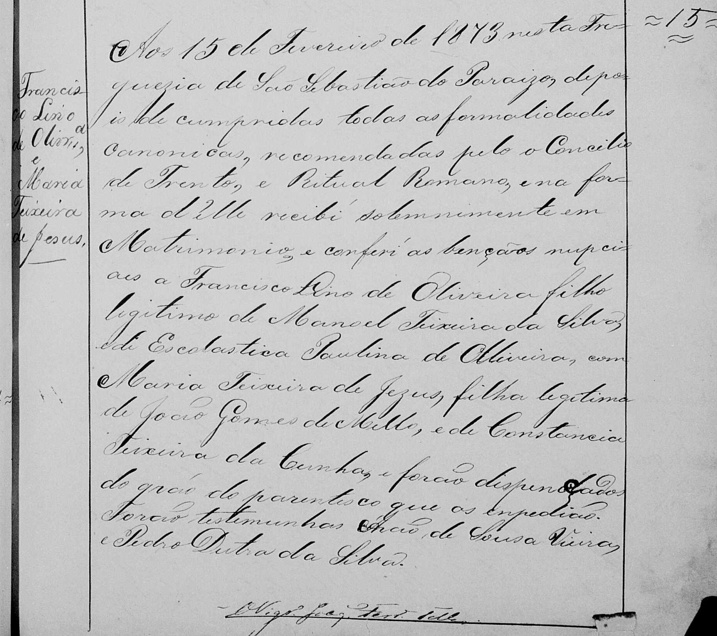 =15=
Francis
co Lino
de Olivrª,
e
Maria
Teixeira
de Jesus,
Aos 15 de Fevereiro de 1873 nesta Fre-
guezia de São Sebastião do Paraizo, depo-
is de cumpridas todas as formalidades
canonicas, recomendadas pelo o Concilio
de Trento, e Ritual Romano, e na for-
ma d'Elle recibí solemnimente em
Matrimonio, e conferí as bençãos nupci-
aes a Francisco Lino de Oliveira filho
legitimo de Manoel Teixeira da Silva,
e de Escolastica Paulina de Olliveira, com
Maria Teixeira de Jezus, filha legitima
de João Gomes de Mello, e de Constancia
Teixeira da Cunha, e forão dispensados
do gráo do parentisco que os enpedião.
Forão testimunhas de Sousa Vieira,
e Pedro Dutra da Silva.
O Vigrº